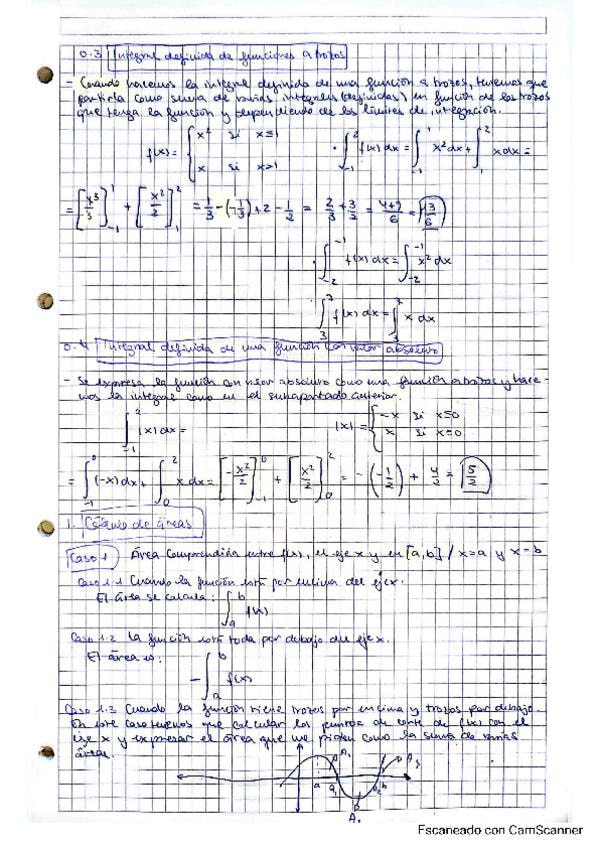 0.3 Integral definida de funciones a trozos
- Cuando hacemos la integral definida de una función a trozos, tenemos que
partirla como suma de varias integrales (definidas) en función de los trozos
que tenga la función y dependiendo de los límites de integración.
f(x) = { x² si x≤1
x si x>1
· ∫₋₁² f(x) dx = ∫₋₁¹ x² dx + ∫₁² x dx =
= [x³/3]₋₁¹ + [x²/2]₁² = 1/3 - (-1/3) + 2 - 1/2 = 2/3 + 3/2 = 4+9/6 = 13/6
· ∫₋₂⁻¹ f(x) dx = ∫₋₂⁻¹ x² dx
∫₃⁷ f(x) dx = ∫₃⁷ x dx
0.4 Integral definida de una función con valor absoluto
- Se expresa la función con valor absoluto como una función a trozos y hace-
mos la integral como en el subapartado anterior.
∫₋₁² |x| dx =
|x| = { -x si x≤0
x si x≥0
= ∫₋₁⁰ (-x) dx + ∫₀² x dx = [-x²/2]₋₁⁰ + [x²/2]₀² = - (-1/2) + 4/2 = 5/2
1. Cálculo de áreas
Caso 1 Área comprendida entre f(x), el eje x y en [a,b] / x=a y x=b
Caso 1.1 Cuando la función está por encima del eje x.
El área se calcula: ∫ₐᵇ f(x)
Caso 1.2 La función está toda por debajo del eje x.
El área es:
- ∫ₐᵇ f(x)
Caso 1.3 Cuando la función tiene trozos por encima y trozos por debajo.
En este caso tenemos que calcular los puntos de corte de f(x) con el
eje x y expresar el área que me piden como la suma de varias
áreas.
A₁
A₃
a a₁ a₂ b
A₂
Escaneado con CamScanner